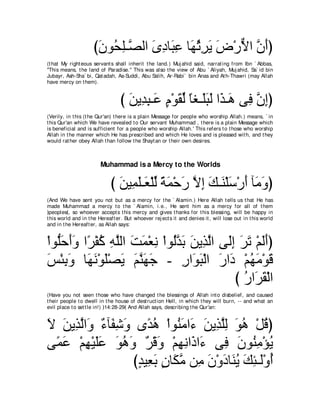 (أَنَّ الاٌّرْضَ يَرِثُهَا عِبَادِىَ الصَّـلِحُونَ)
(that My righteous servants shall inherit the land.) Mujahid said, narrating from Ibn `Abbas,
"This means, the land of Paradise.'' This was also the view of Abu `Aliyah, Mujahid, Sa`id bin
Jubayr, Ash-Sha`bi, Qatadah, As-Suddi, Abu Salih, Ar-Rabi` bin Anas and Ath-Thawri (may Allah
have mercy on them).
(إِنَّ فِى هَـذَا لَبَلَـغاً لِّقَوْمٍ عَـبِدِينَ )
(Verily, in this (the Qur'an) there is a plain Message for people who worship Allah.) means, `in
this Qur'an which We have revealed to Our servant Muhammad , there is a plain Message which
is beneficial and is sufficient for a people who worship Allah.' This refers to those who worship
Allah in the manner which He has prescribed and which He loves and is pleased with, and they
would rather obey Allah than follow the Shaytan or their own desires.
Muhammad is a Mercy to the Worlds
(وَمَآ أَرْسَلْنَـكَ إِلاَّ رَحْمَةً لِّلْعَـلَمِينَ )
(And We have sent you not but as a mercy for the `Alamin.) Here Allah tells us that He has
made Muhammad a mercy to the `Alamin, i.e., He sent him as a mercy for all of them
(peoples), so whoever accepts this mercy and gives thanks for this blessing, will be happy in
this world and in the Hereafter. But whoever rejects it and denies it, will lose out in this world
and in the Hereafter, as Allah says:
(أَلَمْ تَرَ إِلَى الَّذِينَ بَدَّلُواْ نِعْمَتَ اللَّهِ كُفْرًا وَأَحَلُّواْ
قَوْمَهُمْ دَارَ الْبَوَارِ - جَهَنَّمَ يَصْلَوْنَهَا وَبِئْسَ
الْقَرَارُ )
(Have you not seen those who have changed the blessings of Allah into disbelief, and caused
their people to dwell in the house of destruction Hell, in which they will burn, -- and what an
evil place to settle in!) )14:28-29( And Allah says, describing the Qur'an:
(قُلْ هُوَ لِلَّذِينَ ءَامَنُواْ هُدًى وَشِفَآءٌ وَالَّذِينَ لاَ
يُؤْمِنُونَ فِى ءَاذَانِهِمْ وَقْرٌ وَهُوَ عَلَيْهِمْ عَمًى
أُوْلَـئِكَ يُنَادَوْنَ مِن مَّكَانٍ بَعِيدٍ)